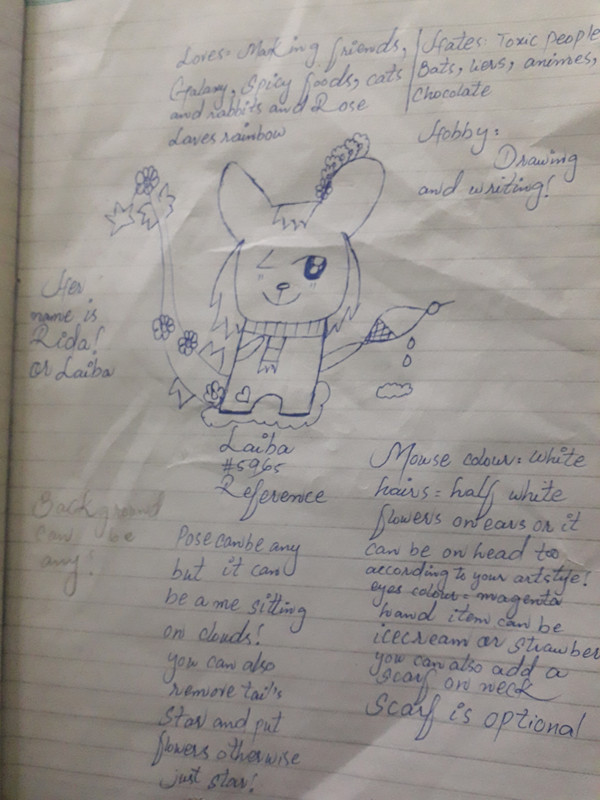 Loves = Making friends,
Galaxy, Spicy foods, cats
and rabbits and Rose
Loves rainbow
Hates: Toxic people
Bats, liers, animes,
Chocolate
Hobby:
Drawing
and writing!
Her
name is
Rida!
or Laiba
Laiba
#5965
Reference
Background
can be
any!
Pose can be any
but it can
be a me sitting
on clouds!
you can also
remove tail's
star and put
flowers otherwise
just star!
Mouse colour: white
hairs = half white
flowers on ears or it
can be on head too
according to your artstyle!
eyes colour = magenta
hand item can be
icecream or strawber
you can also add a
scarf on neck
Scarf is optional